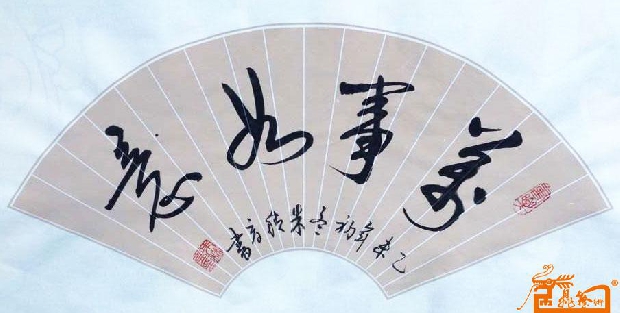 萬事如意
乙未年初冬朱書